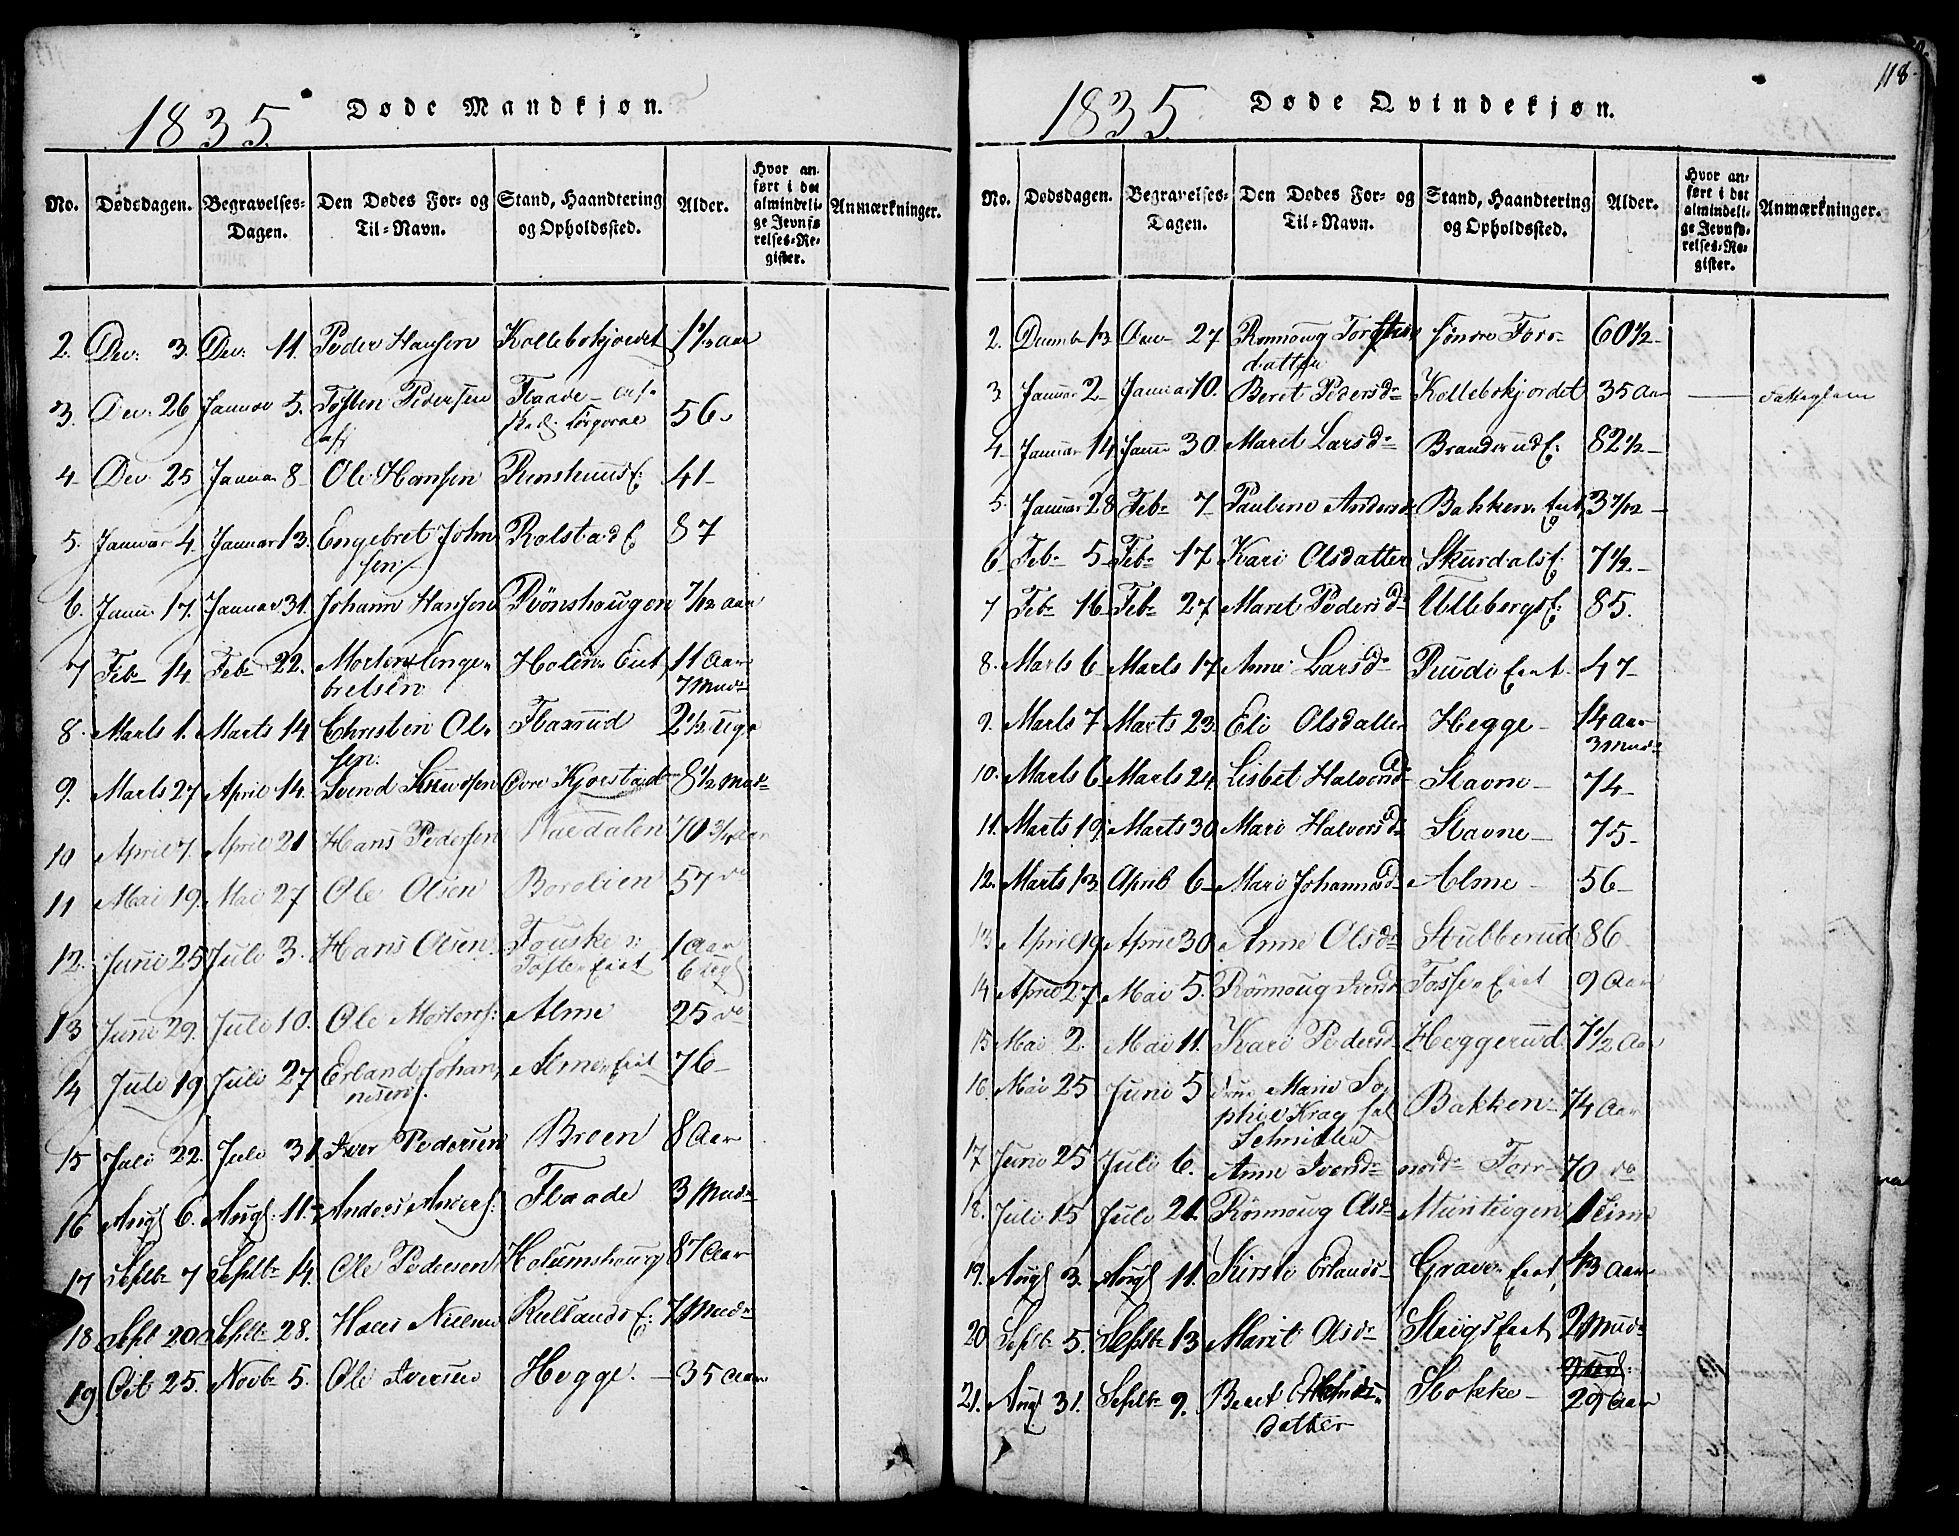 118
1835. Døde Mandkjøn.
No. Dødsdagen. Begravelses-Dagen. Den Dødes For- og Til-Navn. Stand, Haandtering og Opholdssted. Alder. Hvor anført i det almindelige Jevnførelses-Register. Anmærkninger.
2. Dec: 3. Dec: 11. Peder Hansen Kollebokjordet 1½ aar
3. Dec. 26 Januar 5. Tosten Pedersen Flaade 56
4 Dec 25 Januar 8 Ole Hansen 41
5. Januar 4. Januar 13. Engebret John
sen Rolstad E 87
6. Janu: 17. Januar 31. Johann Hansen Rönshaugen 7/12 aar
7 Feb 14. Feb 22. Morten Enge
bretsen Holen Eiet 11 Aar
7 Mud
8. Marts 1. Marts 14 Christen Ol
sen: Flaxrud 2½ uge
9. Marts 27 April 14. Svend Knudsen Övre Kjorstad 8½ Mud
10 April 7. April 21 Hans Pedersen 70 3/4 aar
11 Mai 19. Mai 27 Ole Olsen Borolien 57 do
12. Juni 25 Juli 3. Hans Olsen Fouske
Toften Eiet 1 Aar
6 Ug
13 Juni 29. Juli 10. Ole Mortens: Alme 25 do
14 Juli 19 Juli 27 Erland Johan
nesen Alme Eiet 76
15 Juli 22. Juli 31 Iver Pedersen Broen 8 Aar
16 Aug 6. Aug: 11. Anders Anders: Flaade 3 Mud
17 Septb 7 Septb 14. Ole Pedersen Holumshaug 87 Aar
18 Sept 20 Septb 28. Hans Nielsen Kullands E: 7 Mud
19 Oct 25. Novb 5. Ole Iversen Hegge. 35 Aar
1835. Døde Qvindekjøn.
No. Dødsdagen. Begravelses-Dagen. Den Dødes For- og Til-Navn. Stand, Haandtering og Opholdssted. Alder. Hvor anført i det almindelige Jevnførelses-Register. Anmærkninger.
2. Decemb 13 Dec 27 Rönnoug Torstens
datter søndre Forr 60½
3 Januar 2 Januar 10. Beret Pedersd Kollebokjordet 35 Aar
4 Januar 14 Janu 30 Marit Larsd Branderud E: 82½
5. Januar 28 Feb 7 Pauline Andersd Bakken Eiet 3 7/12
6 Feb 5 Feb 17 Kari Olsdatter Skurdals E. 7½
7 Feb 16 Feb 27 Maret Pedersd Ullebergs E: 85.
8. Marts 6 Marts 17 Anne Larsd Ruudi Eiet 47
9. Marts 7 Marts 23 Eli Olsdatter Hegge 14 Aar
3 Mud
10. Marts 6 Marts 24 Lisbet Halvorsd Stavne 74
11. Marts 19 Marts 30 Mari Halversd Stavne 75
12. Marts 13 April 6 Mari Johannesd Alme 56
13 April 19 April 30 Anne Olsd Stubberud 86
14 April 27 Mai 5. Rönnoug Iversd Fossen Eiet 9 Aar
15 Mai 2 Mai 11. Kari Pedersd Heggerud 7½ Aar
16 Mai 25 Juni 5 Marie So
phie Krag
Schmidler Bakken 74 Aar
17 Juni 25 Juli 6. Anne Iversd nord Forr 70 do
18. Juli 15 Juli 21 Rönnoug Olsd 1 time
19. Aug 3. Aug 11. Kirsti Erlands Graven Eiet 43 Aar
20 Septb 5. Septb 13 Marit Olsd Steigs Eiet 2 Mud
21. Aug 31. Septb 9. Beret
datter Stokke 29 Aar